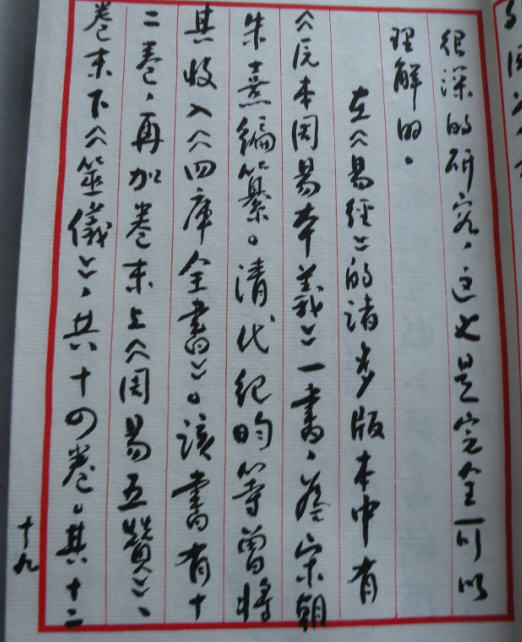 很深的研究，这也是完全可以
理解的。
在《易经》的诸多版本中有
《原本周易本义》一书，为宋朝
朱熹编纂。清代纪昀等曾将
其收入《四库全书》。该书有十
二卷，再加卷末上《周易五赞》、
卷末下《筮仪》，共十四卷。其十二
十九